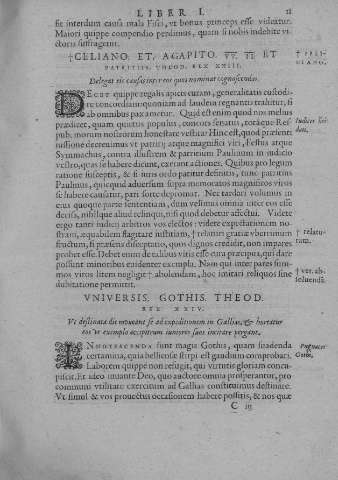 LIBER I.
sit interdum causa mala Fisci, vt bonus princeps esse videatur.
Maiori quippe compendio perdimus, quam si nobis indebite vi-
ctoris suffragent
†CELIANO, ET, AGAPITO, VV. II. ET
PATRITIIS, THEOD. REX XXIII.
Delegat eis causas inter eos quos nominat cognoscendas.
DECET quippe regalis apicis curam, generalitatis custodi-
re concordiam: quoniam ad laudem regnantis trahitur, si
ab omnibus pax ametur. Quid est enim quod nos melius
prædicet, quam quietus populus, concors senatus, totaque Res-
pub. morum nostrorum honestate vestita? Hinc est, quod præsenti
iussione decreuimus vt patritij atque magnifici viri, Festus atque
Symmachus, contra illustrem & patritium Paulinum in iudicio
vestro, quas se habere dicunt, exerant actiones. Quibus pro legum
ratione susceptis, & si iuris ordo patitur definitis, tunc patritius
Paulinus, quicquid aduersum supra memoratos magnificos viros
se habere causatur, pari sorte depromat. Nec tardari volumus in
eius quoque parte sententiam, dum vestimus omnia inter eos esse
decisa, nisi
aliud relinqui, nisi quod debetur affectui. Videte
ergo tanti iudicij arbitros vos electos: videte expectationem no-
stram, æquabilem iustitiam custodire, † relaturi gratiæ vberrimum
fructum, si præsens disceptatio, quos dignos credidit, non impares
probet esse. Debet enim de talibus viris esse cura præcipua, qui dare
possunt minoribus euidenter exemplum. Nam qui inter pares sum-
mos viros litem negligit † abolendam, hoc imitari reliquos sine
dubitatione permittit.
VNIVERSIS. GOTHIS. THEOD.
REX XXIV.
Vt destinata die moueant se ad expeditionem in Gallias, & hortatur
eos vt exemplo accipitrum iuniores suos incitare pergant.
INNOTESCENDA sunt magis Gothis, quam suadenda
certamina, quia bellicosæ stirpi est gaudium comprobari.
Laborem quippe non refugit, qui virtutis gloriam concu-
piscit. Et ideo iuuante Deo, quo auctore omnia prosperantur, pro
communi vtilitate exercitum ad Gallias constituimus destinare.
Vt simul & vos prouectus occasionem habere possitis, & nos quæ
C iij
† relatu-
† ver. ab-